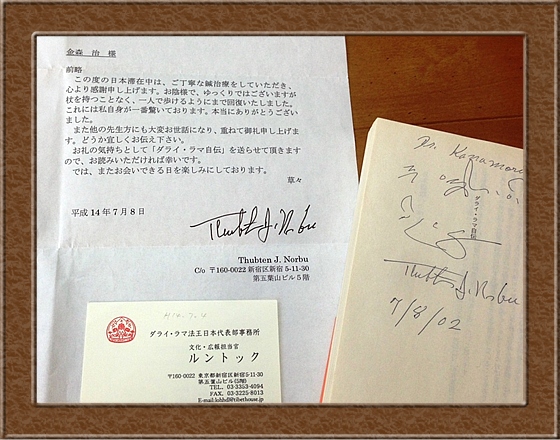 金森 治 様
前略
この度の日本滞在中は、ご丁寧な鍼治療をしていただき、
心より感謝申し上げます。お陰様で、ゆっくりではございますが
杖を持つことなく、一人で歩けるようにまで回復いたしました。
これには私自身が一番驚いております。本当にありがとうござい
ました。
また他の先生方にも大変お世話になり、重ねて御礼申し上げま
す。どうか宜しくお伝え下さい。
お礼の気持ちとして「ダライ・ラマ自伝」を送らせて頂きます
ので、お読みいただければ幸いです。
では、またお会いできる日を楽しみにしております。
草々
平成14年7月8日
Thubten J. Norbu
Thubten J. Norbu
C/o 〒160-0022 新宿区新宿 5-11-30
第五葉山ビル5階
H14.7.4
ダライ・ラマ法王日本代表部事務所
文化・広報担当官
ルントック
〒160-0022 東京都新宿区新宿5-11-30
第五葉山ビル(5階)
TEL. 03-3353-4094
FAX. 03-3225-8013
E-mail:lohhdl@tibethouse.jp
Mr. Kanamory
ダライ・ラマ自伝
Thubten J. Norbu
7/8/02